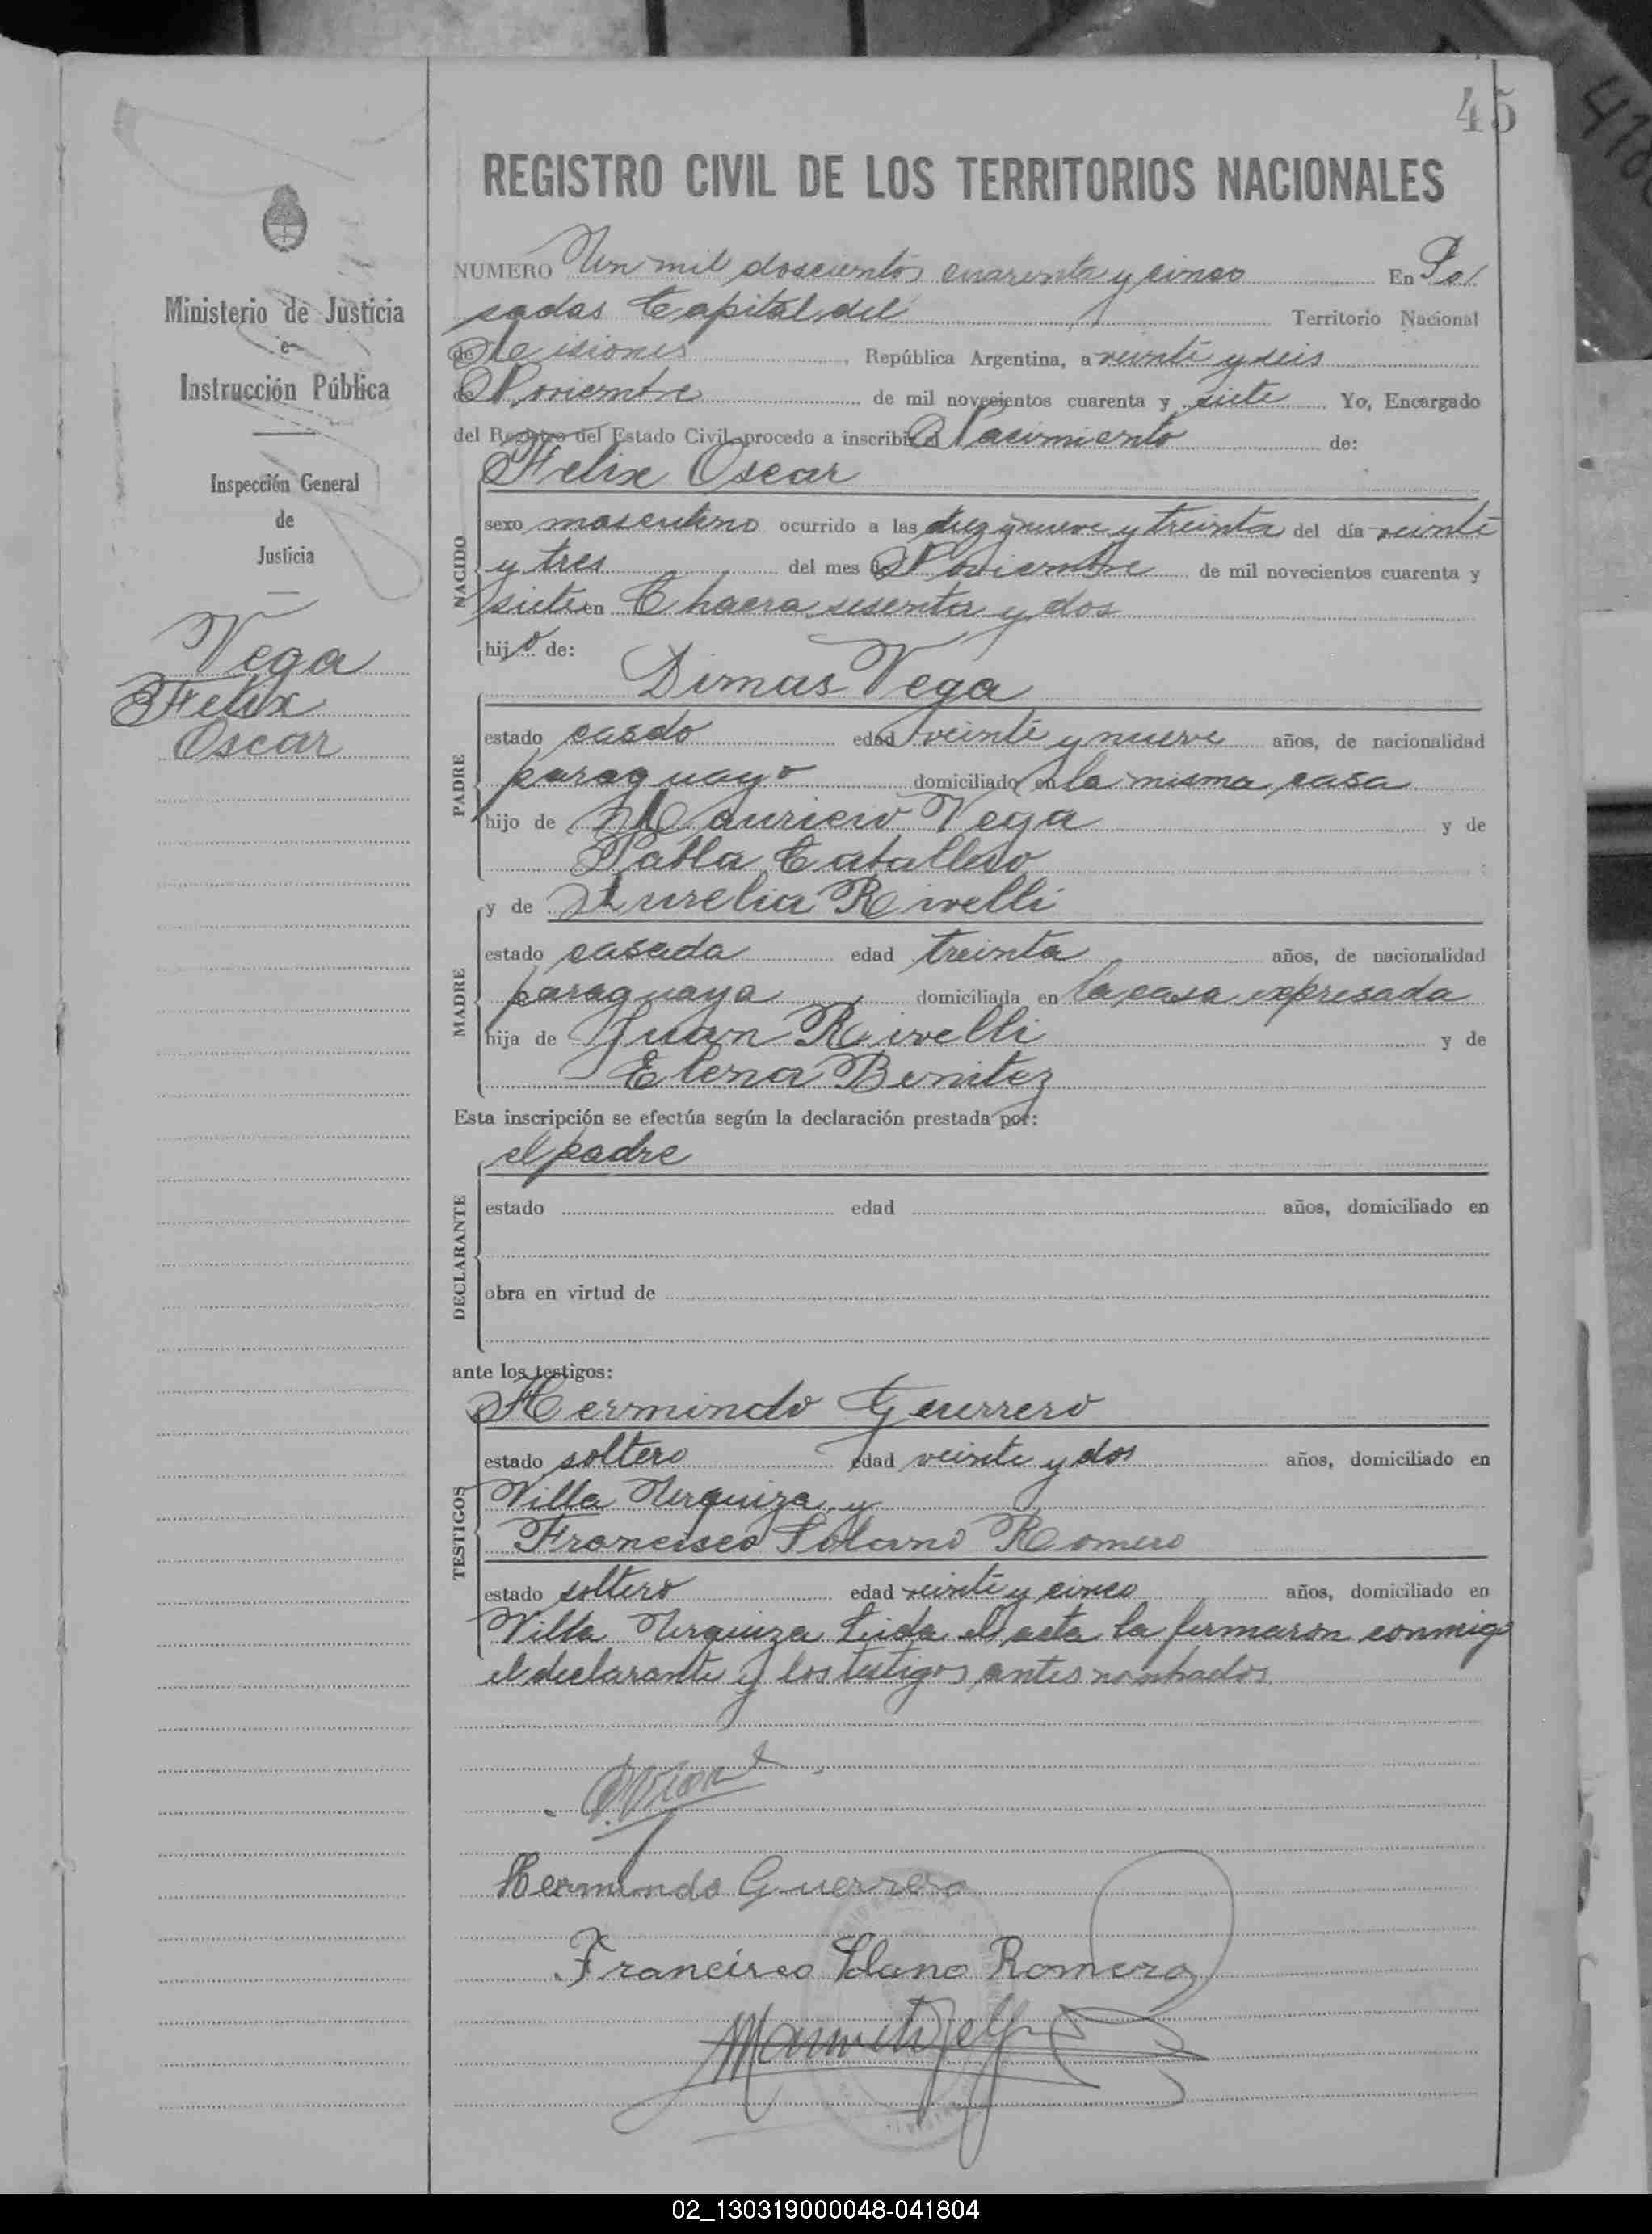 45
REGISTRO CIVIL DE LOS TERRITORIOS NACIONALES
Ministerio de Justicia
e
Instrucción Pública
Inspección General
de
Justicia
Vega
Felix
Oscar
NUMERO Un mil doscientos cuarenta y cinco En Po/
sadas Capital del Territorio Nacional
de Misiones, República Argentina, a veinte y seis
de Noviembre de mil novecientos cuarenta y siete Yo, Encargado
del Registro del Estado Civil, procedo a inscribir el Nacimiento de:
Felix Oscar
NACIDO
sexo masculino ocurrido a las diez y nueve y treinta del día veinte
y tres del mes de Noviembre de mil novecientos cuarenta y
siete en Chacra sesenta y dos
hijo de:
Dimas Vega
PADRE
estado casdo edad veinte y nueve años, de nacionalidad
paraguayo domiciliado en la misma casa
hijo de Mauricio Vega y de
Pabla Caballero
y de Aurelia Rivelli
MADRE
estado casada edad treinta años, de nacionalidad
paraguaya domiciliada en la casa expresada
hija de Juan Rivelli y de
Elena Benitez
Esta inscripción se efectúa según la declaración prestada por:
el padre
DECLARANTE
estado edad años, domiciliado en
obra en virtud de
ante los testigos:
Hermindo Guerrero
TESTIGOS
estado soltero edad veinte y dos años, domiciliado en
Villa Urquiza y
Francisco Solano Romero
estado soltero edad veinte y cinco años, domiciliado en
Villa Urquiza Leida el acta la firmaron conmigo
el declarante y los testigos antes nombrados
Hermindo Guerrero
Francisco Solano Romero
02_130319000048-041804